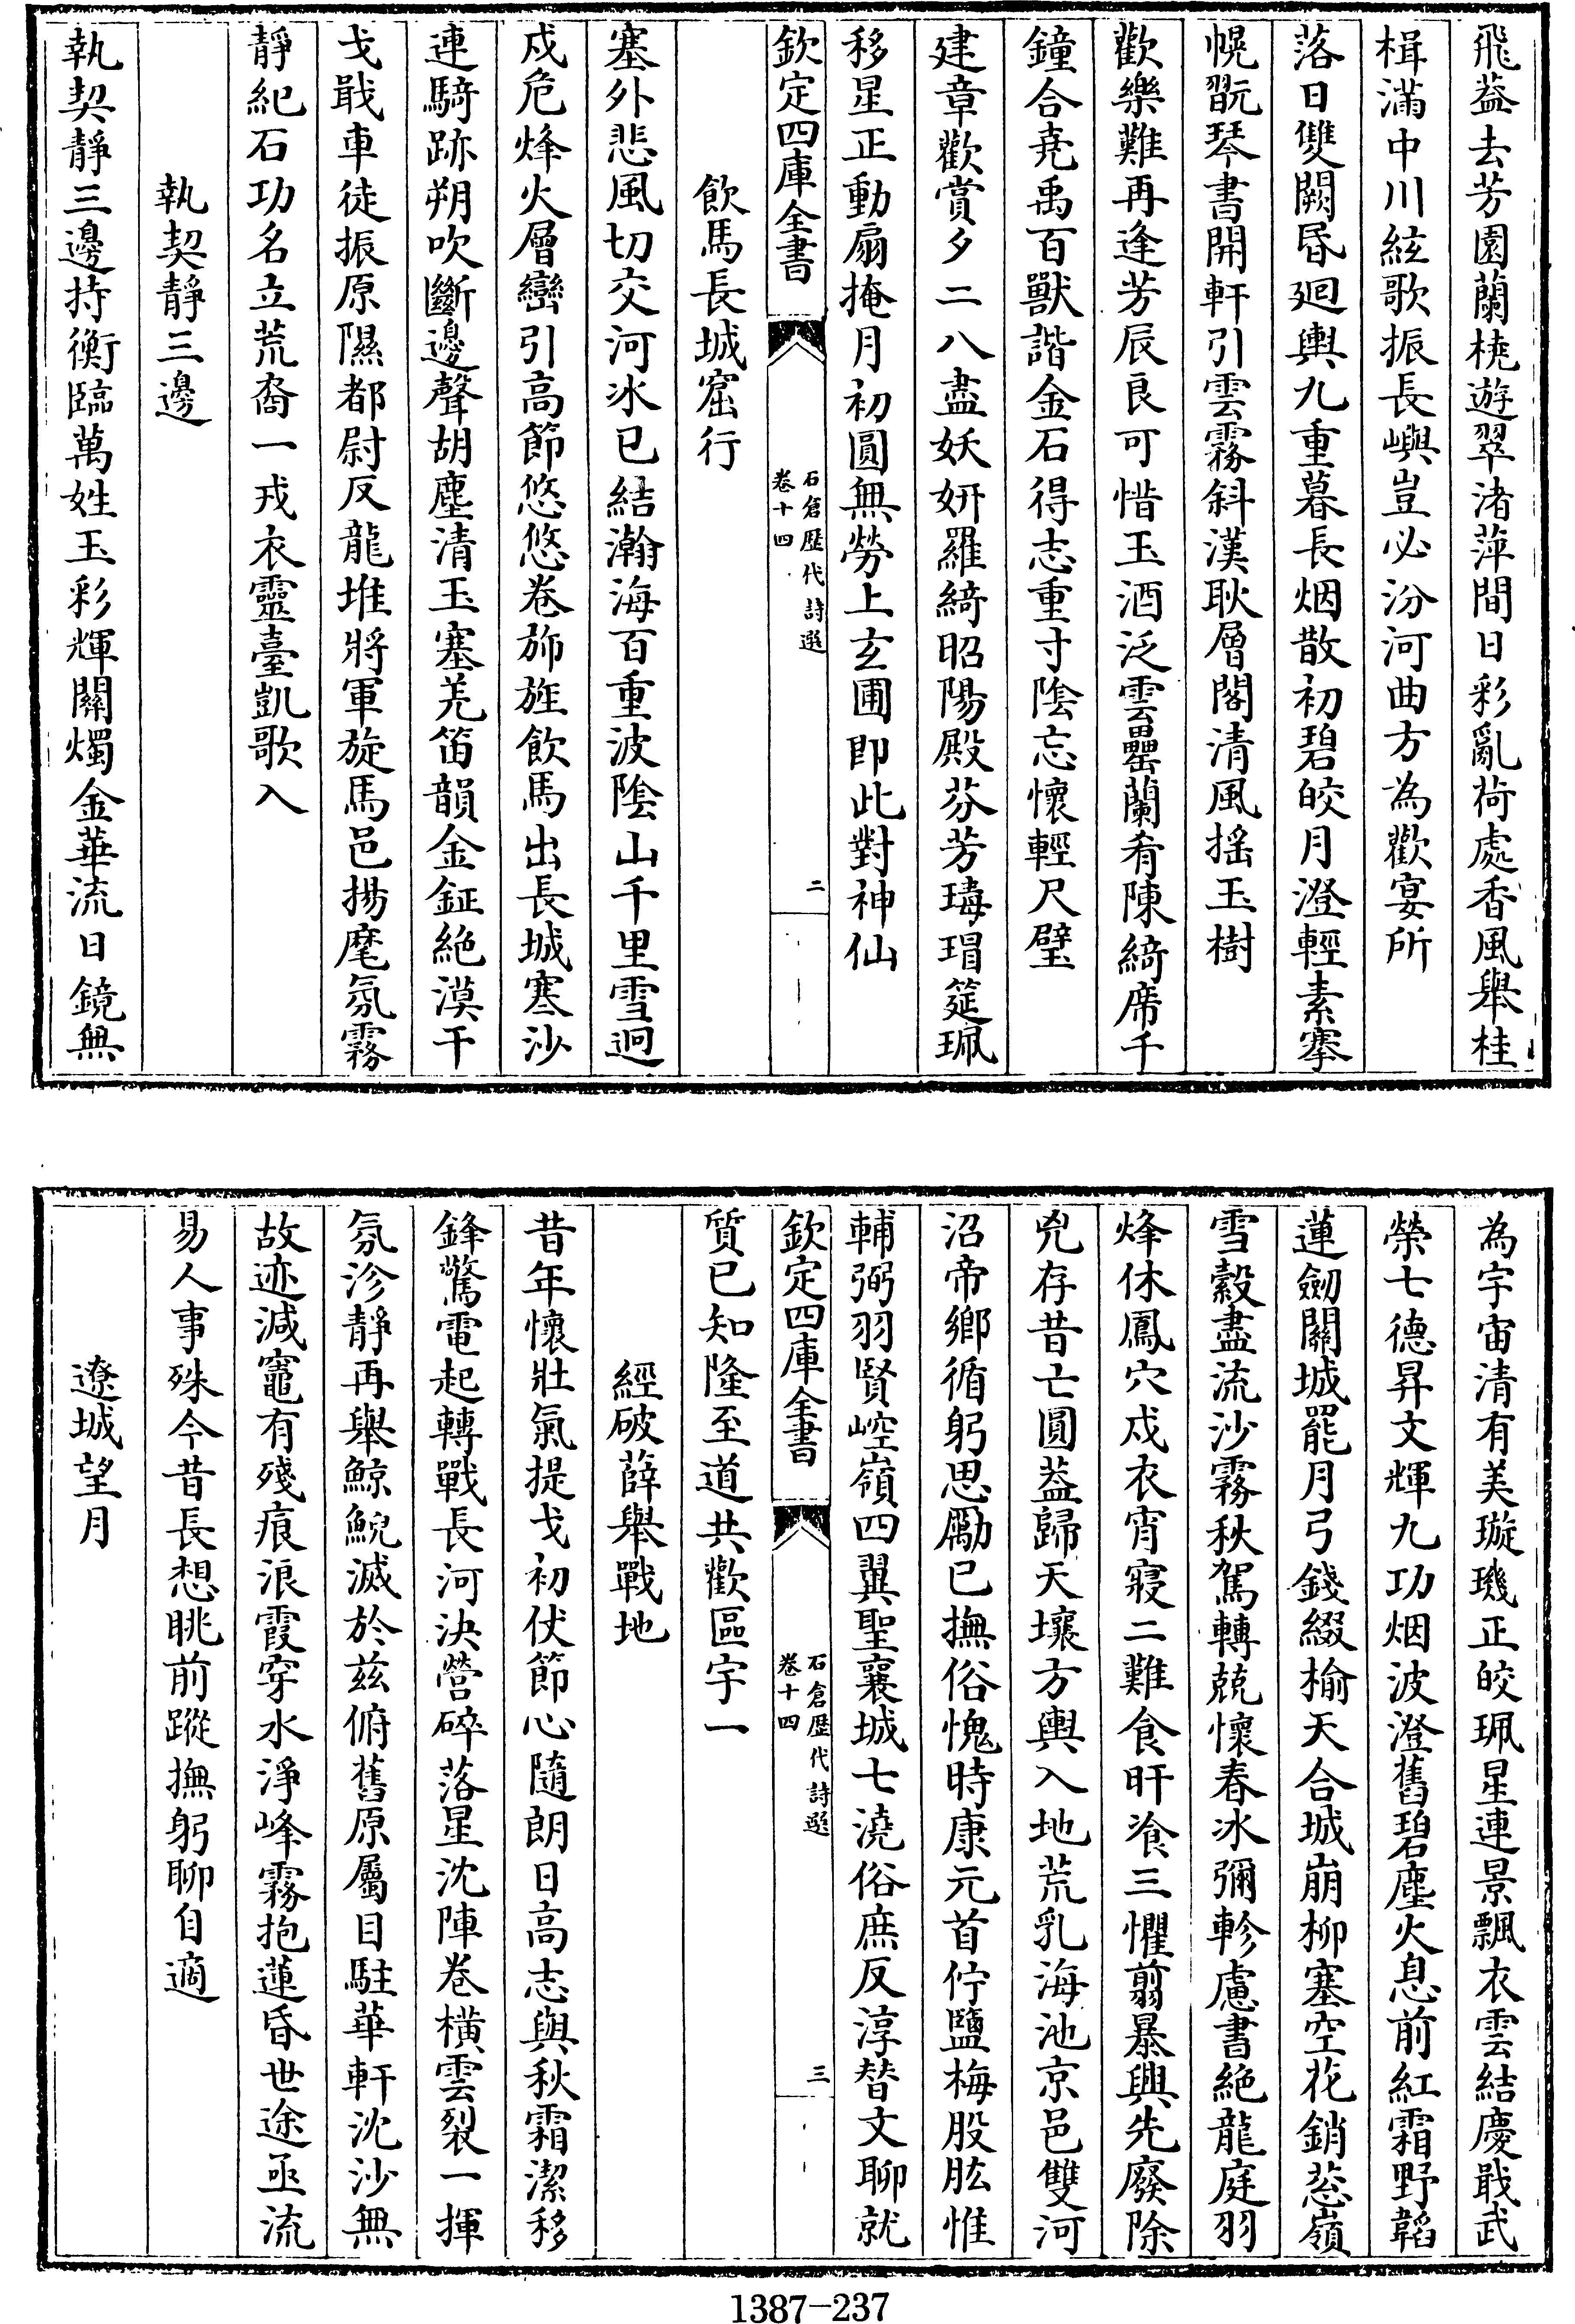 飛葢去芳園蘭橈遊翠渚萍間日彩亂荷處香風舉桂
楫滿中川絃歌振長嶼豈必汾河曲方為歡宴所
落日雙闕昏廻輿九重暮長烟散初碧皎月澄輕素搴
幌翫琴書開軒引雲霧斜漢耿層閣清風搖玉樹
歡樂難再逢芳辰良可惜玉酒泛雲罍蘭肴陳綺席千
鐘合堯禹百獸諧金石得志重寸陰忘懷輕尺璧
建章歡賞夕二八盡妖妍羅綺昭陽殿芬芳瑇瑁筵珮
移星正動扇掩月初圓無勞上玄圃即此對神仙
欽定四庫全書
石倉歷代詩選
卷十四
二
飲馬長城窟行
塞外悲風切交河冰已結瀚海百重波陰山千里雪迥
戍危烽火層巒引高節悠悠卷斾旌飲馬出長城寒沙
連騎跡朔吹斷邊聲胡塵清玉塞羌笛韻金鉦絕漠干
戈戢車徒振原隰都尉反龍堆將軍旋馬邑揚麾氛霧
靜紀石功名立荒裔一戎衣靈臺凱歌入
執契靜三邊
執契靜三邊持衡臨萬姓玉彩輝關燭金華流日鏡無
為宇宙清有美璇璣正皎珮星連景飄衣雲結慶戢武
榮七德昇文輝九功烟波澄舊碧塵火息前紅霜野韜
蓮劒關城罷月弓錢綴榆天合城崩柳塞空花銷葱嶺
雪縠盡流沙霧秋駕轉兢懷春冰彌軫慮書絕龍庭羽
烽休鳳穴戍衣宵寢二難食旰飡三懼翦暴興先廢除
兇存昔亡圓葢歸天壤方輿入地荒乳海池京邑雙河
沼帝鄉循躬思勵已撫俗愧時康元首佇鹽梅股肱惟
輔弼羽賢崆嶺四翼聖襄城七澆俗庶反淳替文聊就
欽定四庫全書
石倉歷代詩選
卷十四
三
質已知隆至道共歡區宇一
經破薛舉戰地
昔年懷壯氣提戈初伏節心隨朗日高志與秋霜潔移
鋒驚電起轉戰長河決營碎落星沈陣卷橫雲裂一揮
氛沴靜再舉鯨鯢滅於兹俯舊原屬目駐華軒沈沙無
故迹減竈有殘痕浪霞穿水淨峰霧抱蓮昏世途亟流
易人事殊今昔長想眺前蹤撫躬聊自適
遼城望月
1387-237